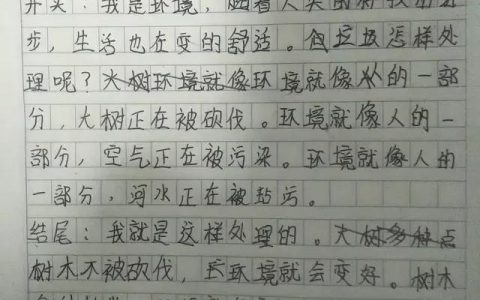 开头：我是环境，随着人类的科技的进
步，生活也在变的舒适。但垃圾怎样处
理呢？大树环境就像环境就像人的一部
分，大树正在被砍伐。环境就像人的一
部分，空气正在被污染。环境就像人的
一部分，河水正在被玷污。
结尾：我就是这样处理的。大树多种点
树木不被砍伐，环境就会变好。树木